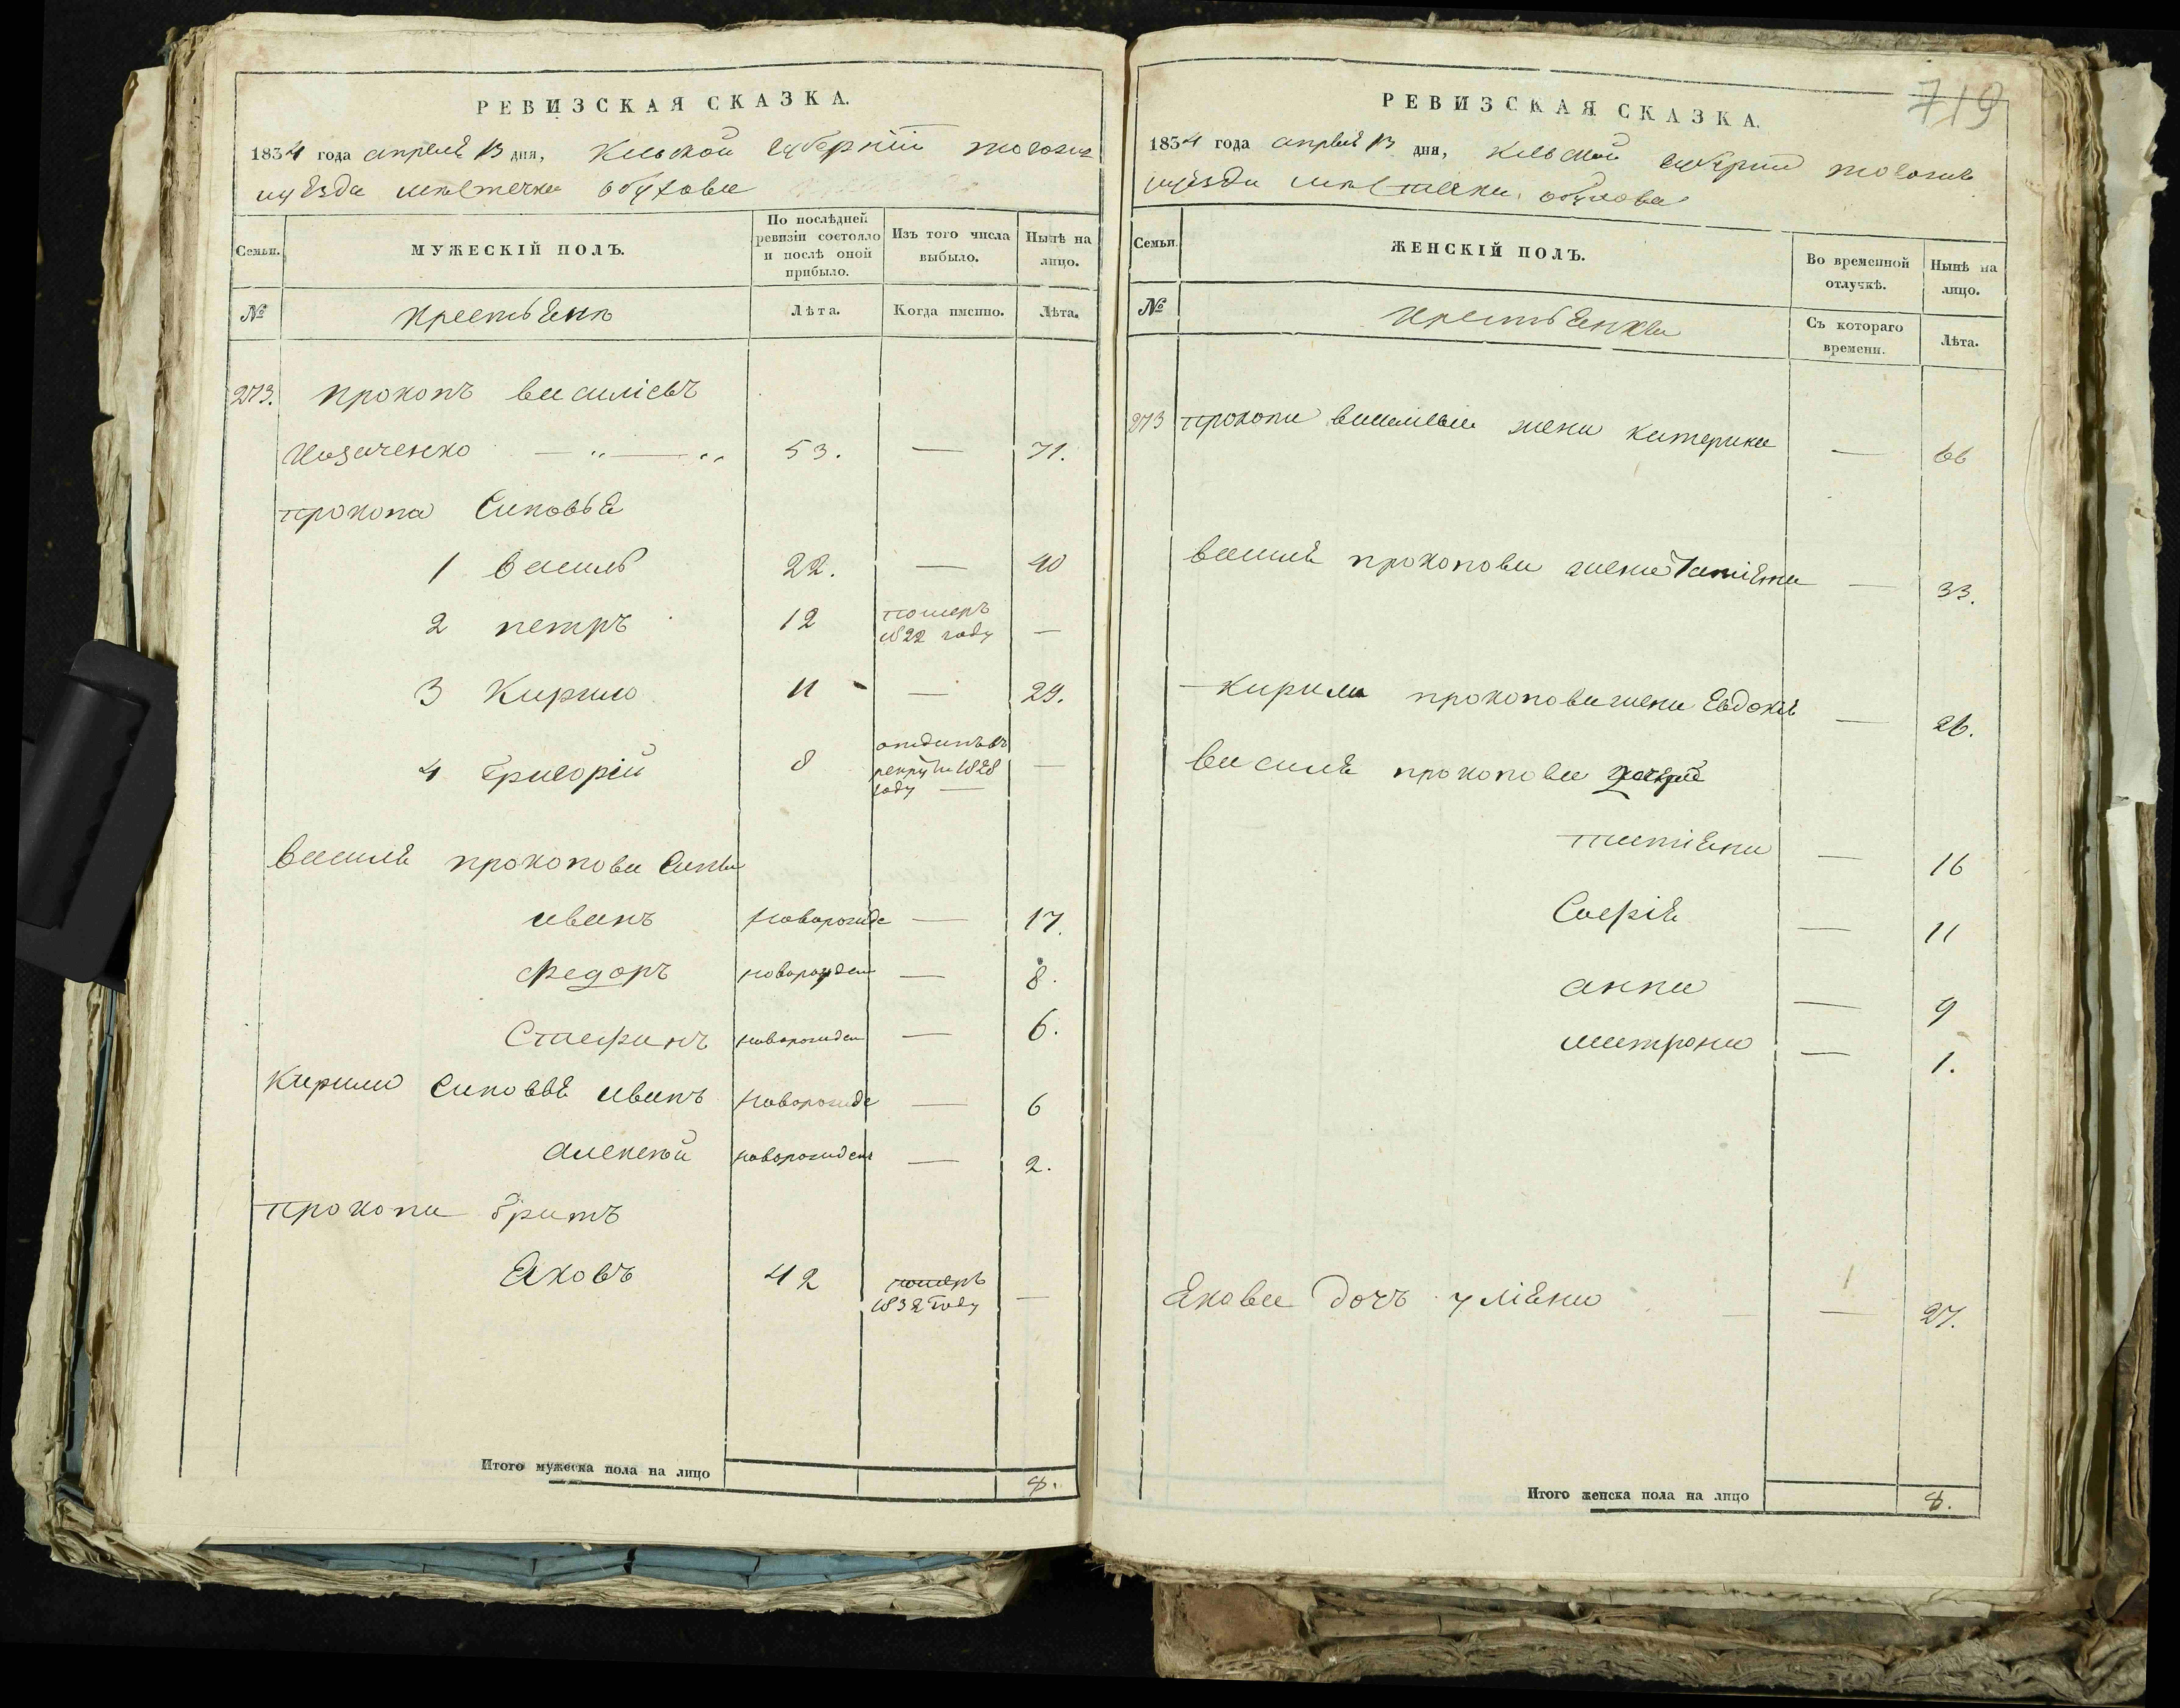 РЕВИЗСКАЯ СКАЗКА.
1834 года апреля 13 дня, Киевской Губернии тогожъ
уезда местечка обухова
Семьи.
МУЖЕСКІЙ ПОЛЪ.
По послѣдней ревизіи состояло и послѣ оной прибыло.
Изъ того числа выбыло.
Нынѣ на лицо.
№
крестьянъ
Лѣта.
Когда именно.
Лѣта.
273. прокопъ василіевъ
Козаченко 53. — 71.
прокопа Синовья
1 василь 22. — 40
2 петръ 12 померъ 1822 году —
3 Кирило 11 — 29.
4 Григорій 8 отданъ въ рекруты 1828 году —
василя прокопова Сины
иванъ новорожде — 17.
федоръ новорожден — 8.
Стефанъ новорожден — 6.
Кирила Синовья иванъ новорожде — 6
алексей новорожден — 2.
прокопа братъ
Яковъ 42 померъ 1832 году —
Итого мужеска пола на лицо 8.
719
РЕВИЗСКАЯ СКАЗКА.
1834 года апреля 13 дня, Киевской губерніи тогожъ
уезда местечка обухова
Семьи.
ЖЕНСКІЙ ПОЛЪ.
Во временной отлучкѣ.
Нынѣ на лицо.
№
крестьянки
Съ котораго времени.
Лѣта.
273 прокопа василіева жена катерина — 66
василя прокопова жена — 33.
Кирила прокопова жена Евдокія — 26.
василя прокопова дочери
татіяна — 16
Софія — 11
анна — 9
матрона — 1.
Якова дочъ уліяна — 27.
Итого женска пола на лицо 8.